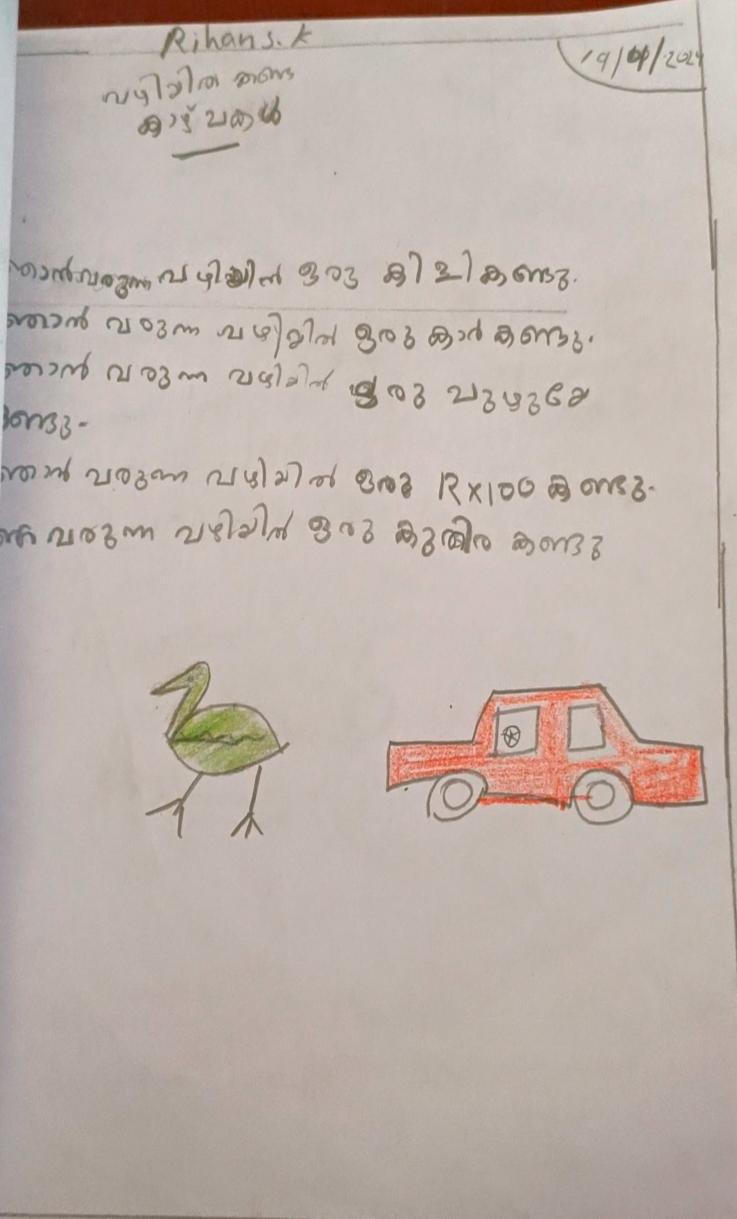 Rihan s.k
19/09/2024
വഴിയിൽ കണ്ട
കാഴ്ചകൾ
ഞാൻ വരുന്ന വഴിയിൽ ഒരു കിളി കണ്ടു.
ഞാൻ വരുന്ന വഴിയിൽ ഒരു കാർ കണ്ടു.
ഞാൻ വരുന്ന വഴിയിൽ ഒരു
ണ്ടു.
ഞാൻ വരുന്ന വഴിയിൽ ഒരു RX100 കണ്ടു.
വരുന്ന വഴിയിൽ ഒരു കുതിര കണ്ടു